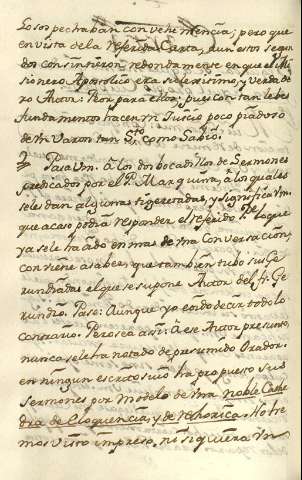 lo sospechaban con vehemencia; pero que
en vista de la referida Carta, aun estos segun
dos consintieron redondamente en que el Mi
sionero Apostolico era solerisimo, y verdade
ro Autor: Peor para ellos; pues con tan lebes
fundamentos hacen un Juicio poco piadoso
de un Varon tan Sto. como Sabio.
Pasa Vm. à los dos bocadillos de Sermones
predicados por el P. Marquina, à los quales
se les dan algunas tigeretadas, y significa Vm.
que acaso podrà responder el referido Pe. lo que
ya se le ha oido en mas de una Conversacion,
conviene à saber, que tambien tubo sus Ge
rundiadas el que se supone Autor del fr. Ge
rundio. Pase: Aunque yo entido decir todo lo
contrario. Pero sea asi: A ese Autor presunto,
nunca se le ha notado de presumido Orador.
en ningun escrito suio ha propuesto sus
Sermones por modelo de una noble Cathe
dra de Eloquencia, y de Rhetorica. No he
mos visto impreso, ni siquiera un